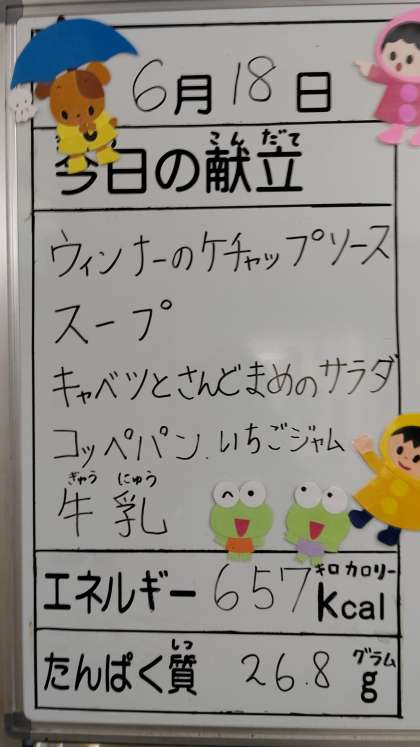 6月18日
こんだて
今日の献立
ウィンナーのケチャップソース
スープ
キャベツとさんどまめのサラダ
コッペパン.いちごジャム
ぎゅう にゅう
牛乳
キロカロリー
エネルギー 657 Kcal
しつ グラム
たんぱく質 26.8 g